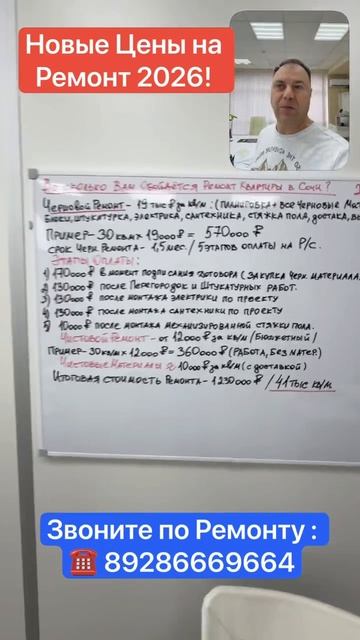 Новые Цены на
Ремонт 2026!
Во сколько Вам обойдётся Ремонт Квартиры в Сочи?
Черновой Ремонт - 19 тыс ₽ за кв/м : (планировка + все черновые мат
блоки, штукатурка, электрика, сантехника, стяжка пола, доставка, ве
Пример - 30 кв.м х 19000 ₽ = 570000 ₽
срок черн. ремонта - 1,5 мес / 5 этапов оплаты на Р/с.
Этапы оплаты:
1) 170000 ₽ в момент подписания договора (закупка черн. материала
2) 130000 ₽ после перегородок и штукатурных работ.
3) 130000 ₽ после монтажа электрики по проекту
4) 130000 ₽ после монтажа сантехники по проекту
5) 10000 ₽ после монтажа механизированной стяжки пола.
Чистовой Ремонт - от 12000 ₽ за кв/м /Бюджетный/
Пример - 30 кв/м х 12000 ₽ = 360000 ₽ (работа, без матер.)
Чистовые материалы 10000 ₽ за кв/м (с доставкой)
Итоговая стоимость Ремонта - 1230000 ₽ / 41 тыс кв/м
Звоните по Ремонту :
☎️ 89286669664